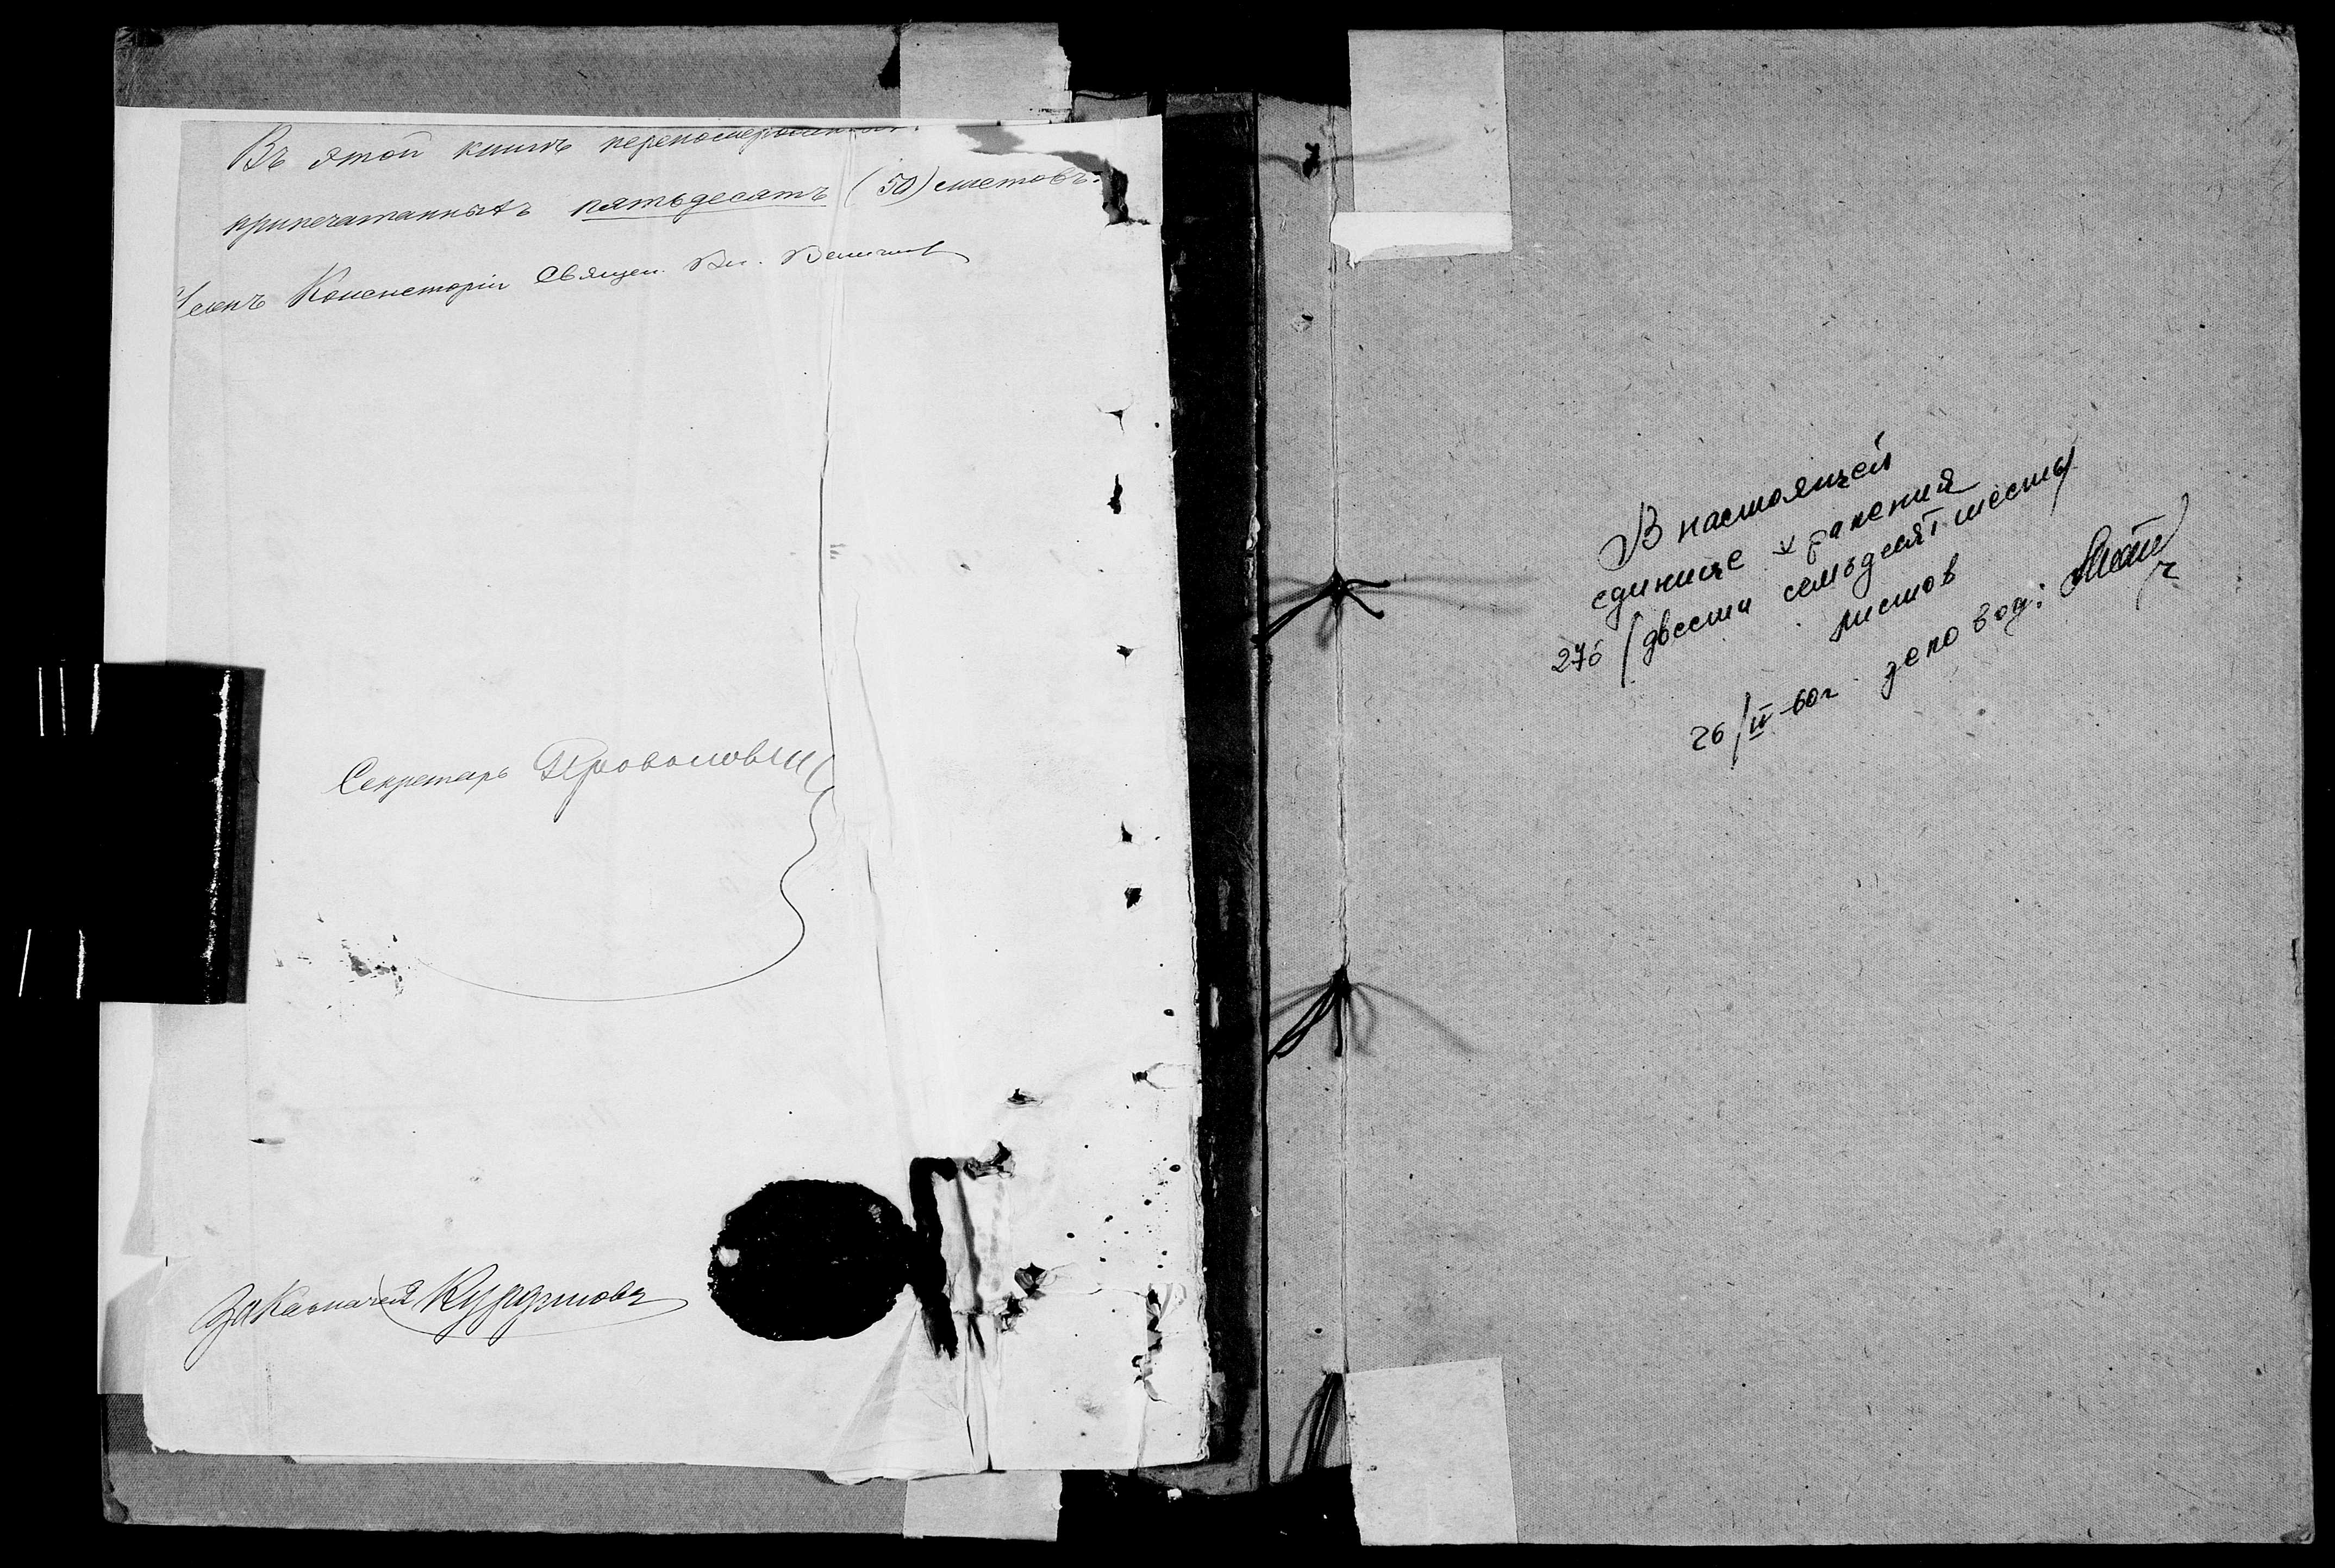 Въ этой книгѣ перенумерованныхъ
припечатанныхъ пятьдесятъ (50) листовъ.
Членъ Консисторіи Священ. Вл.
Секретарь
За Казначея
В настоящей
единице хранения
276 (двести семьдесят шесть)
листов
26/II-60г делопроизвод: